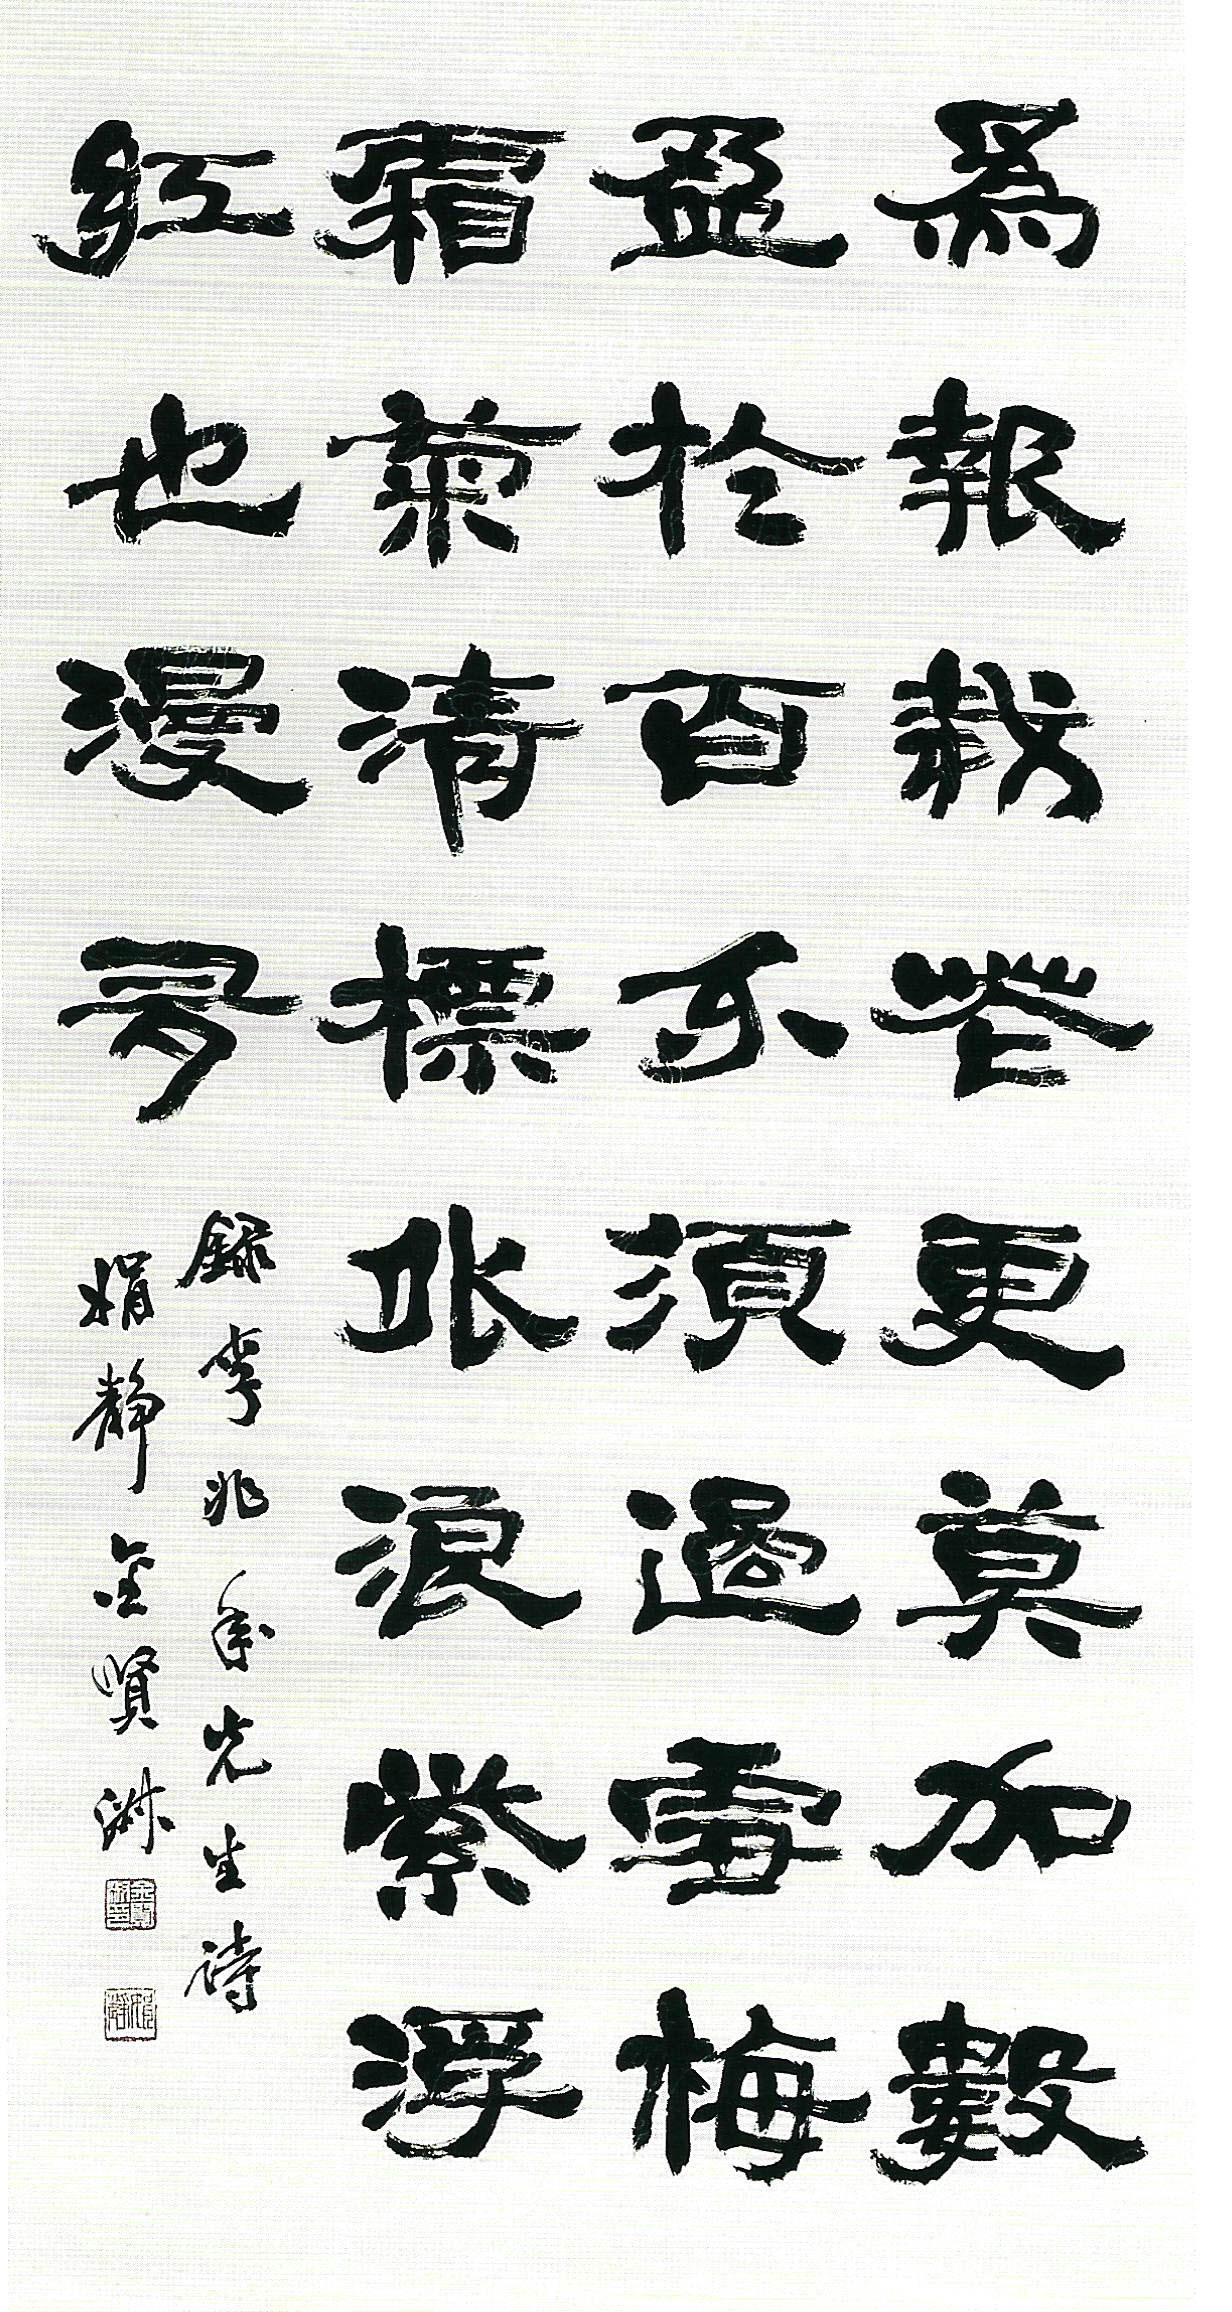 爲報栽花更莫加數
盈於百不須過雪梅
霜菊清標外浪紫浮
紅也漫多
錄李兆年先生詩
娟靜金賢淋